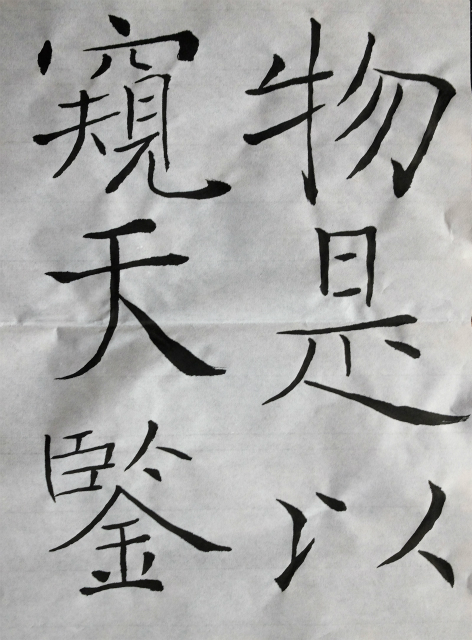 物是以
窺天鑒